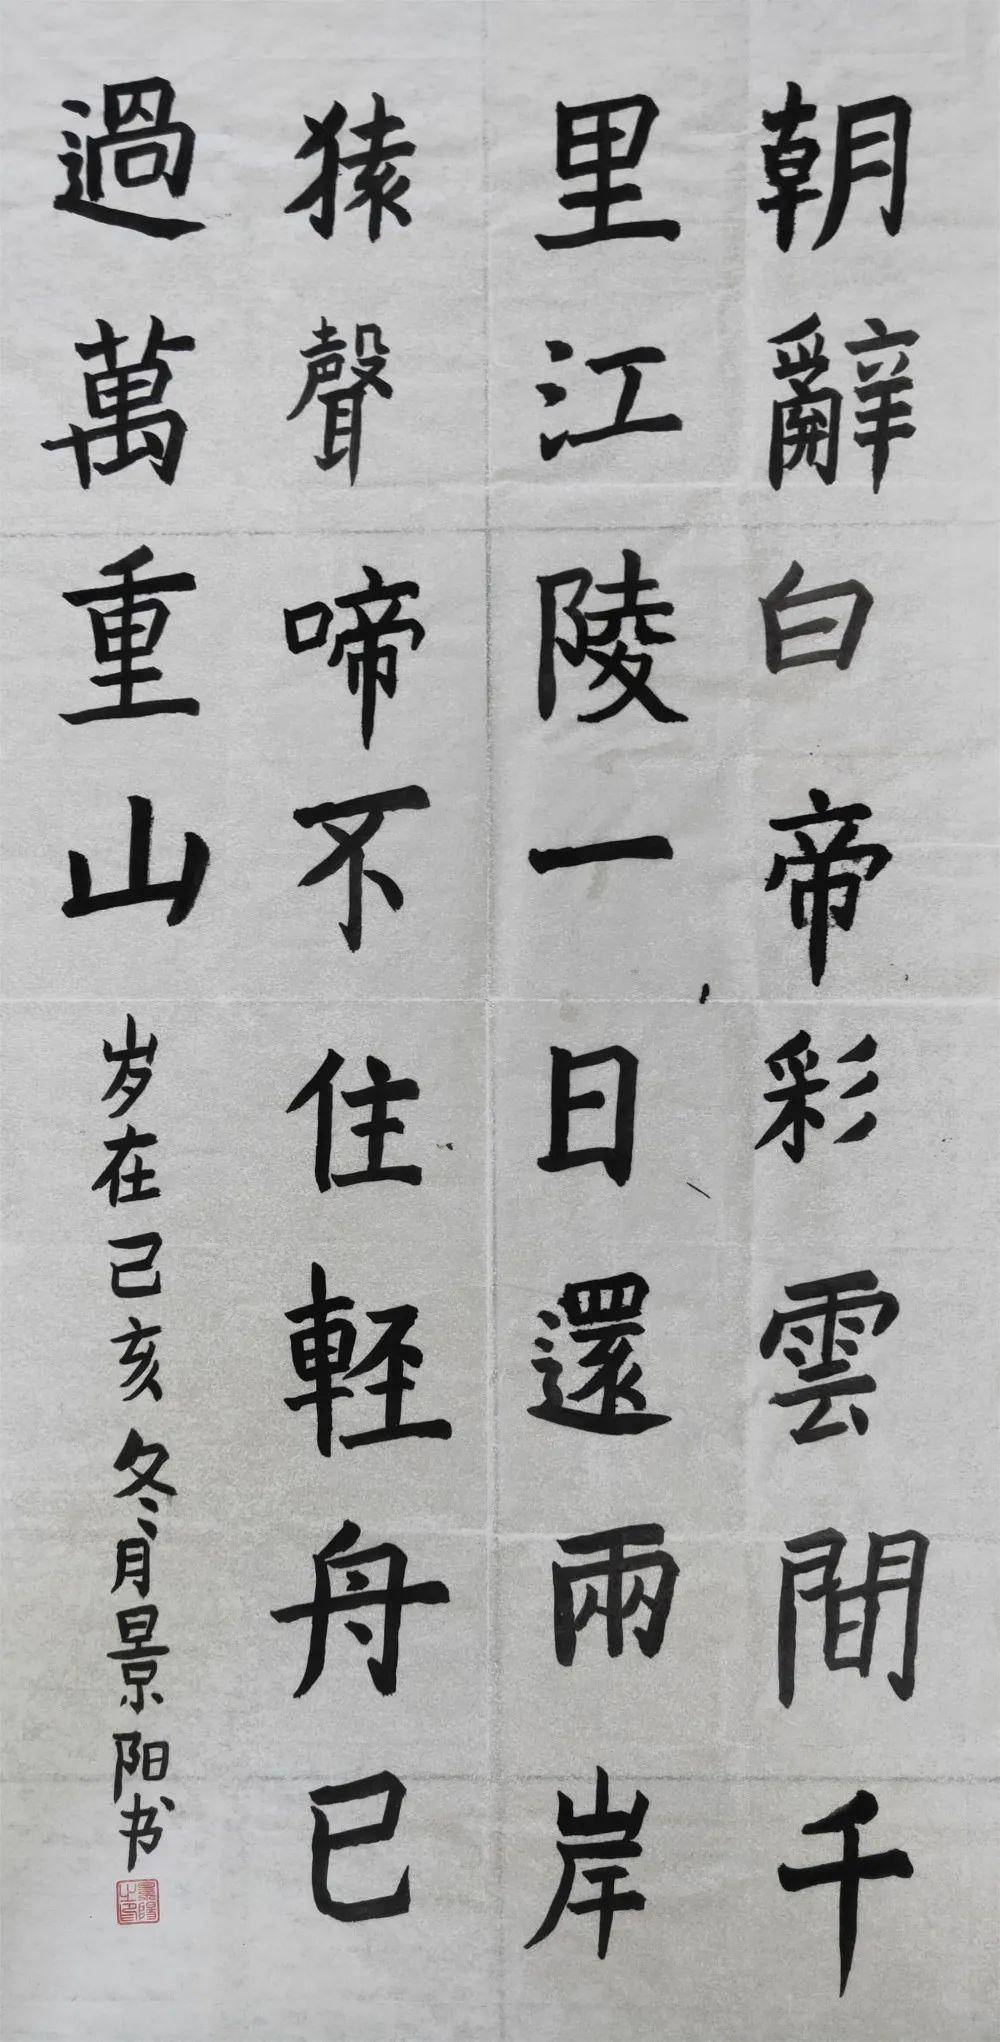 朝辭白帝彩雲間千
里江陵一日還兩岸
猿聲啼不住輕舟已
過萬重山
岁在己亥冬月景阳书